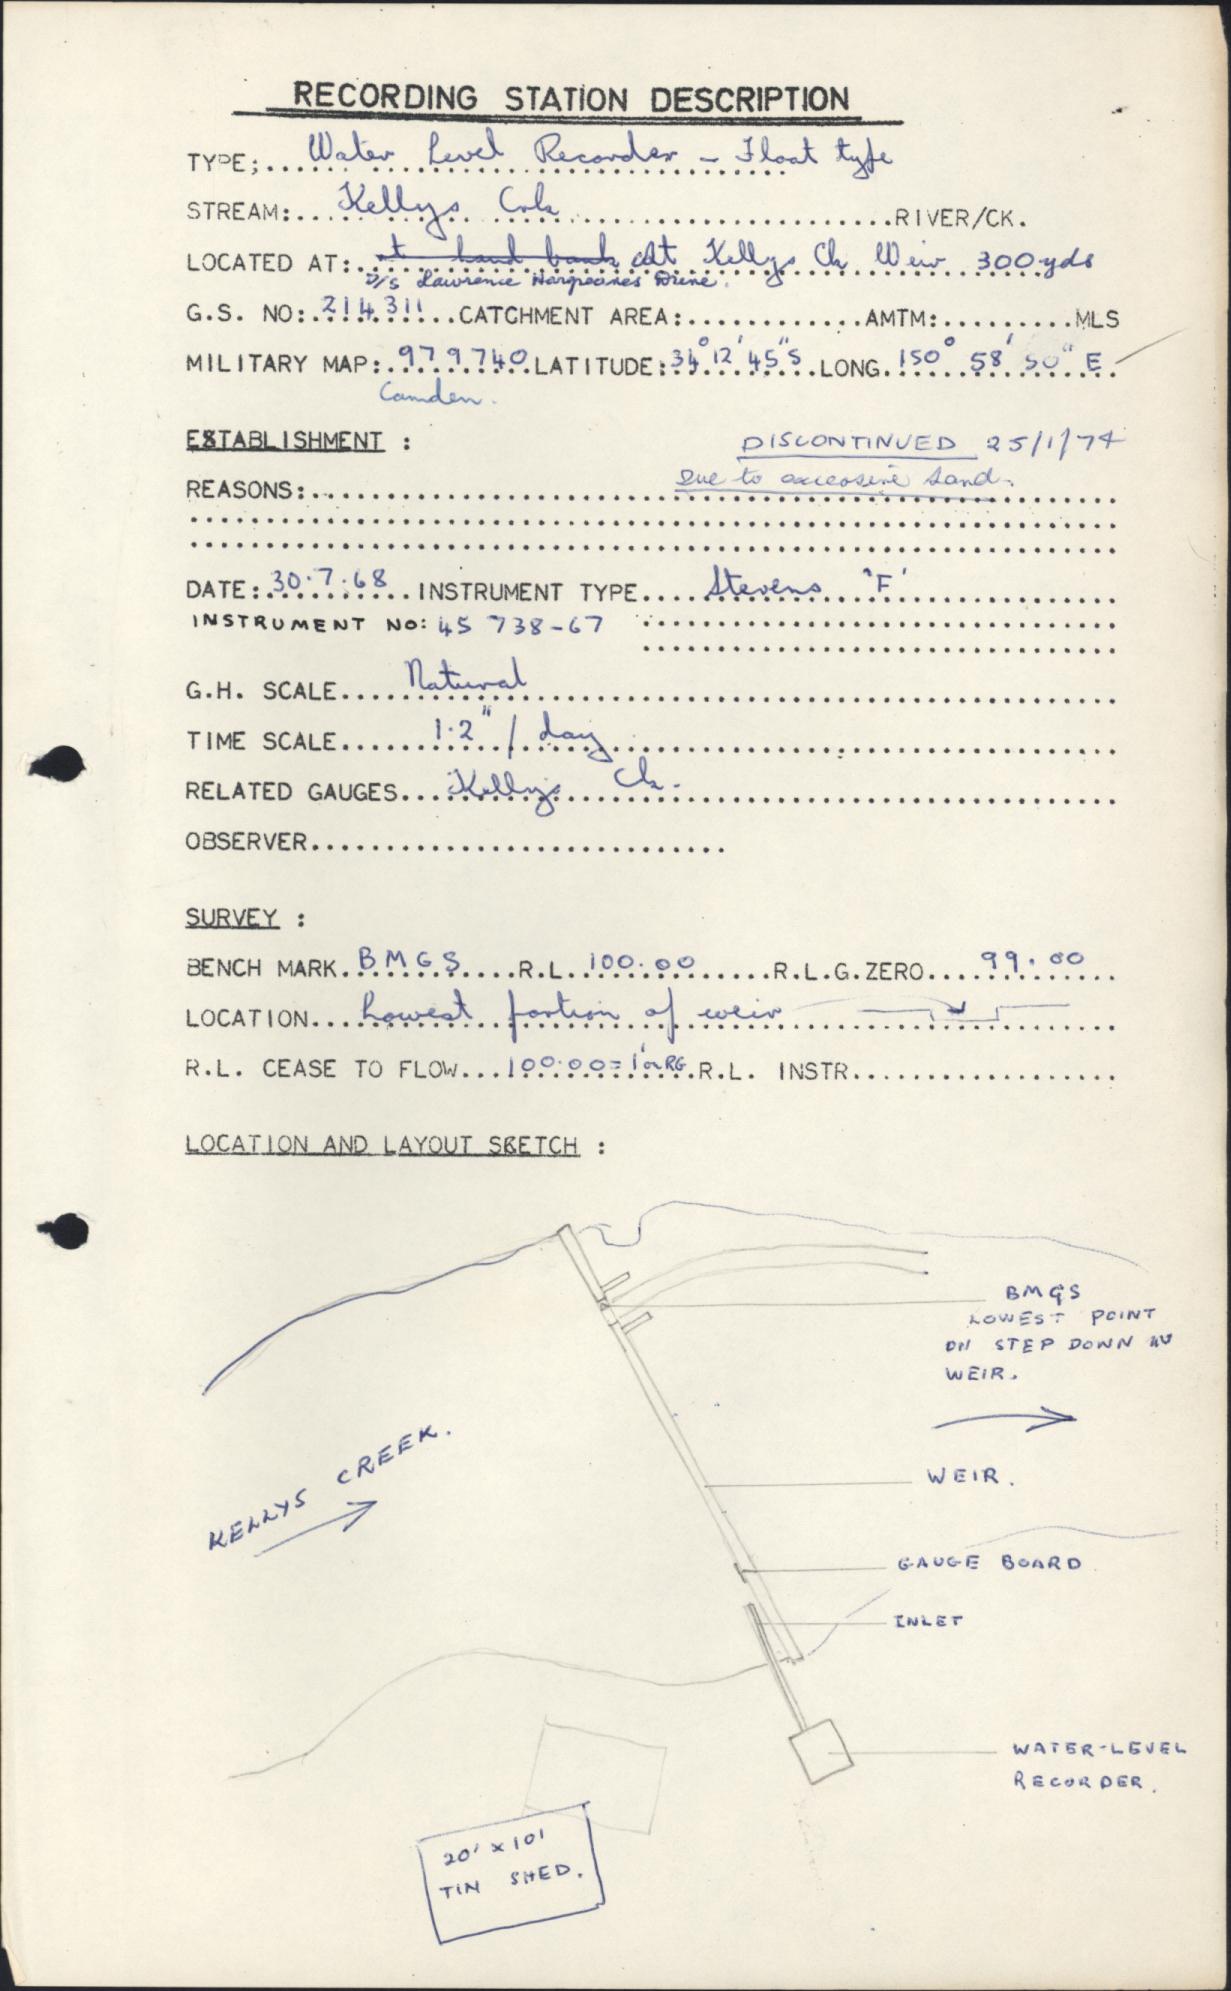 RECORDING STATION DESCRIPTION
TYPE;....Water Level Recorder - Float type
STREAM:....Kellys Crk....RIVER/CK.
LOCATED AT:....At Kellys Ck Weir 300 yds
D/S Lawrence Hargreaves Drive.
G.S. NO:.214311...CATCHMENT AREA:............AMTM:.........MLS
MILITARY MAP:.979740.LATITUDE:34° 12' 45"S.LONG.150° 58' 50" E
Camden.
ESTABLISHMENT :
DISCONTINUED 25/1/74
REASONS:....due to excessive sand.
DATE:.30.7.68..INSTRUMENT TYPE....Stevens 'F'
INSTRUMENT NO: 45 738-67
G.H. SCALE....Natural
TIME SCALE....1.2" / day
RELATED GAUGES...Kellys Ck.
OBSERVER............................
SURVEY :
BENCH MARK.BMGS....R.L..100.00....R.L.G.ZERO....99.00
LOCATION...Lowest portion of weir
R.L. CEASE TO FLOW...100.00=1' on RG.R.L. INSTR...............
LOCATION AND LAYOUT SKETCH :
BMGS
LOWEST POINT
ON STEP DOWN IN
WEIR.
KELLYS CREEK.
WEIR.
GAUGE BOARD
INLET
WATER-LEVEL
RECORDER.
20' x 10'
TIN SHED.